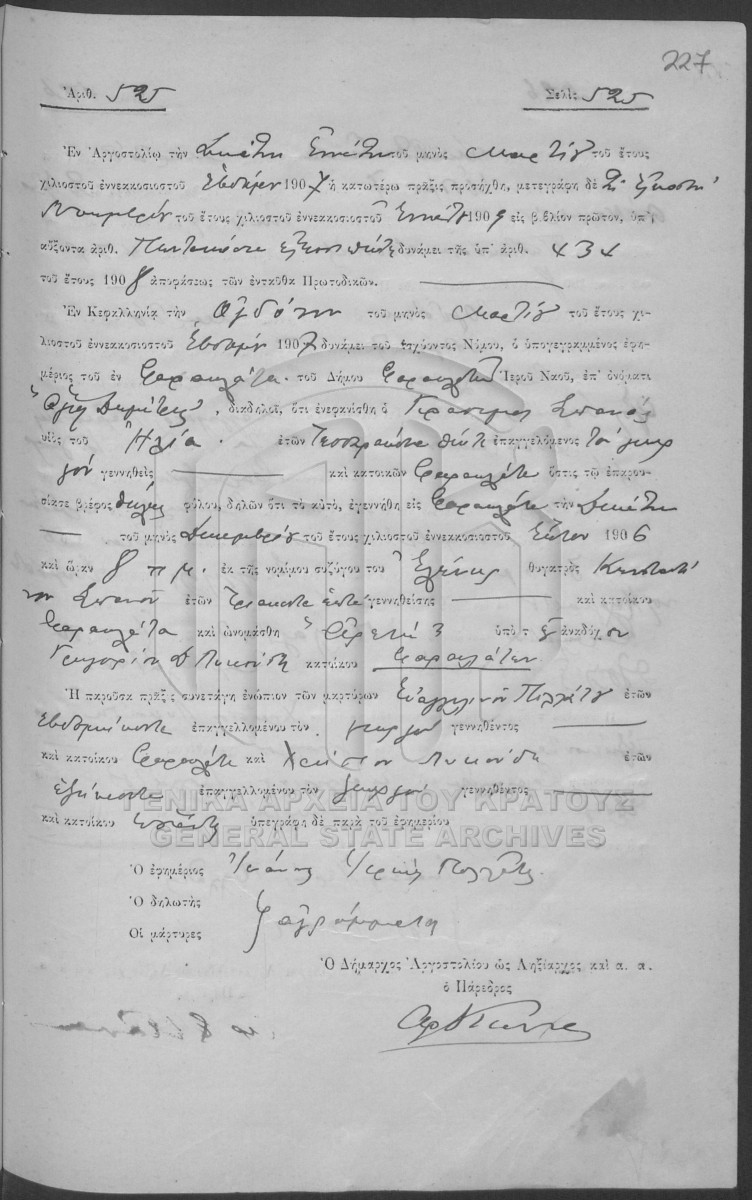 227
Ἀριθ. 525 Σελὶς 525
Ἐν Ἀργοστολίῳ τὴν Δεκάτην Ἐννάτην τοῦ μηνὸς Μαρτίου τοῦ ἔτους
χιλιοστοῦ ἐννεακοσιοστοῦ Ἑβδόμου 1907 ἡ κατωτέρω πρᾶξις προσήχθη, μετεγράφη δὲ
τοῦ ἔτους χιλιοστοῦ ἐννεακοσιοστοῦ Ἐννάτου 1909 εἰς βιβλίον πρῶτον, ὑπ'
αὔξοντα ἀριθ. Πεντακόσια εἴκοσι πέντε δυνάμει τῆς ὑπ' ἀριθ. 434
τοῦ ἔτους 1908 ἀποφάσεως τῶν ἐνταῦθα Πρωτοδικῶν.
Ἐν Κεφαλληνίᾳ τὴν Ὀγδόην τοῦ μηνὸς Μαρτίου τοῦ ἔτους χι-
λιοστοῦ ἐννεακοσιοστοῦ Ἑβδόμου 1907 δυνάμει τοῦ ἰσχύοντος Νόμου, ὁ ὑπογεγραμμένος ἐφη-
μέριος τοῦ ἐν Φαρακλάτα τοῦ Δήμου Ἱεροῦ Ναοῦ, ἐπ' ὀνόματι
Ἁγίου Δημητρίου, διακηλοῖ, ὅτι ἐνεφανίσθη ὁ Γεράσιμος Σπανὸς
υἱὸς τοῦ Ἠλία ἐτῶν Τεσσαράκοντα πέντε ἐπαγγελόμενος τὸν γεωρ
γὸν γεννηθεὶς καὶ κατοικῶν Φαρακλάτα ὅστις τῷ ἐπαρου-
σίασε βρέφος θῆλυ φύλου, δηλῶν ὅτι τὸ αὐτὸ, ἐγεννήθη εἰς Φαρακλάτα τὴν Δεκάτην
τοῦ μηνὸς Δεκεμβρίου τοῦ ἔτους χιλιοστοῦ ἐννεακοσιοστοῦ Ἕκτου 1906
καὶ ὥραν 8 π.μ. ἐκ τῆς νομίμου συζύγου του Ἑλένης θυγατρὸς Κωνσταντί
νου Σπανοῦ ἐτῶν Τριάκοντα ἑπτὰ γεννηθείσης καὶ κατοίκου
Φαρακλάτα καὶ ὠνομάσθη Ἀρετὴ ὑπὸ τοῦ ἀναδόχου
Γρηγορίου Δ κατοίκου Φαρακλάτων
Ἡ παροῦσα πρᾶξις συνετάγη ἐνώπιον τῶν μαρτύρων Εὐαγγελινοῦ ἐτῶν
Ἑβδομήκοντα ἐπαγγελλομένου τὸν γεωργὸν γεννηθέντος
καὶ κατοίκου Φαρακλάτα καὶ Χρήστου ἐτῶν
Ἑξήκοντα ἐπαγγελλομένου τὸν γεωργὸν γεννηθέντος
καὶ κατοίκου ὑπεγράφη δὲ παρὰ τοῦ ἐφημερίου
ΓΕΝΙΚΑ ΑΡΧΕΙΑ ΤΟΥ ΚΡΑΤΟΥΣ
GENERAL STATE ARCHIVES
Ὁ ἐφημέριος Ἰωάννης Ἱερεὺς
Ὁ δηλωτὴς
Οἱ μάρτυρες ἀγράμματοι
Ὁ Δήμαρχος Ἀργοστολίου ὡς Ληξίαρχος καὶ α. α.
ὁ Πάρεδρος